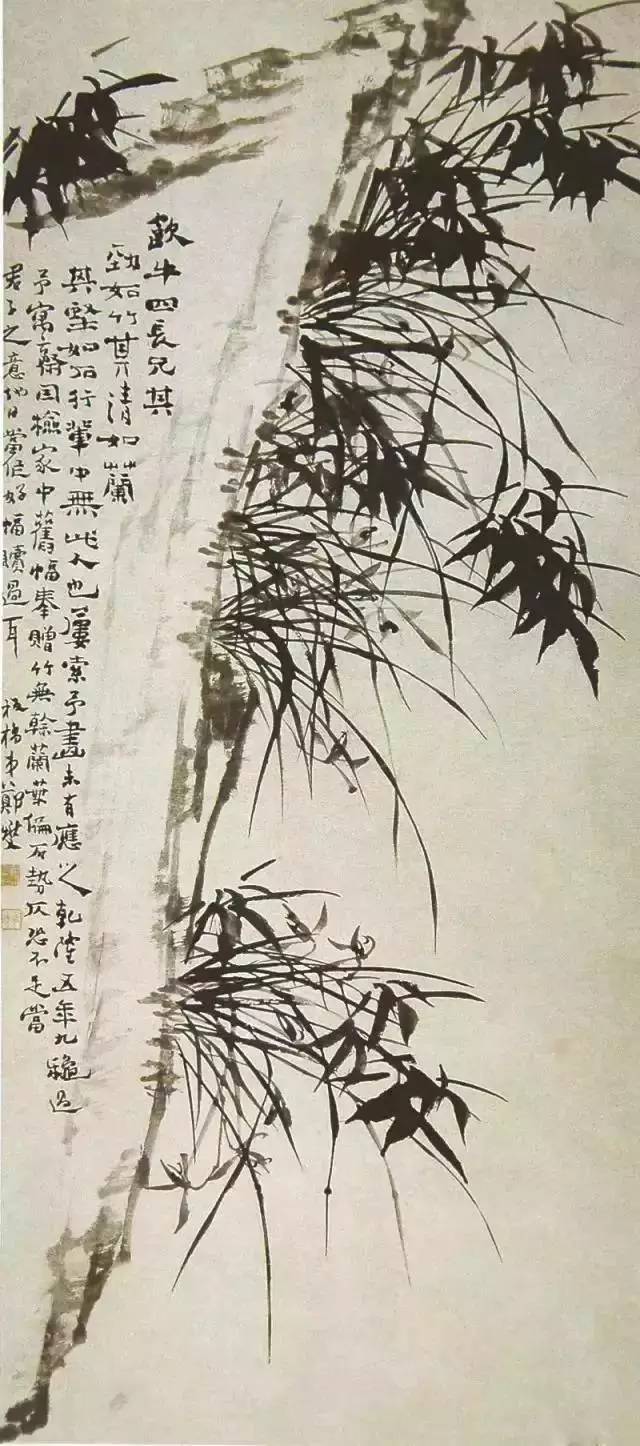 牛四長兄其
勁如竹其清如蘭
其堅如石行輩中無此人也屢索予畫未有應之乾隆五年九龝過
予寓齋因檢家中舊幅奉贈竹無幹蘭葉偏石勢仄恐不足當
君子之意他日當作好幅贖過耳 板橋弟鄭燮